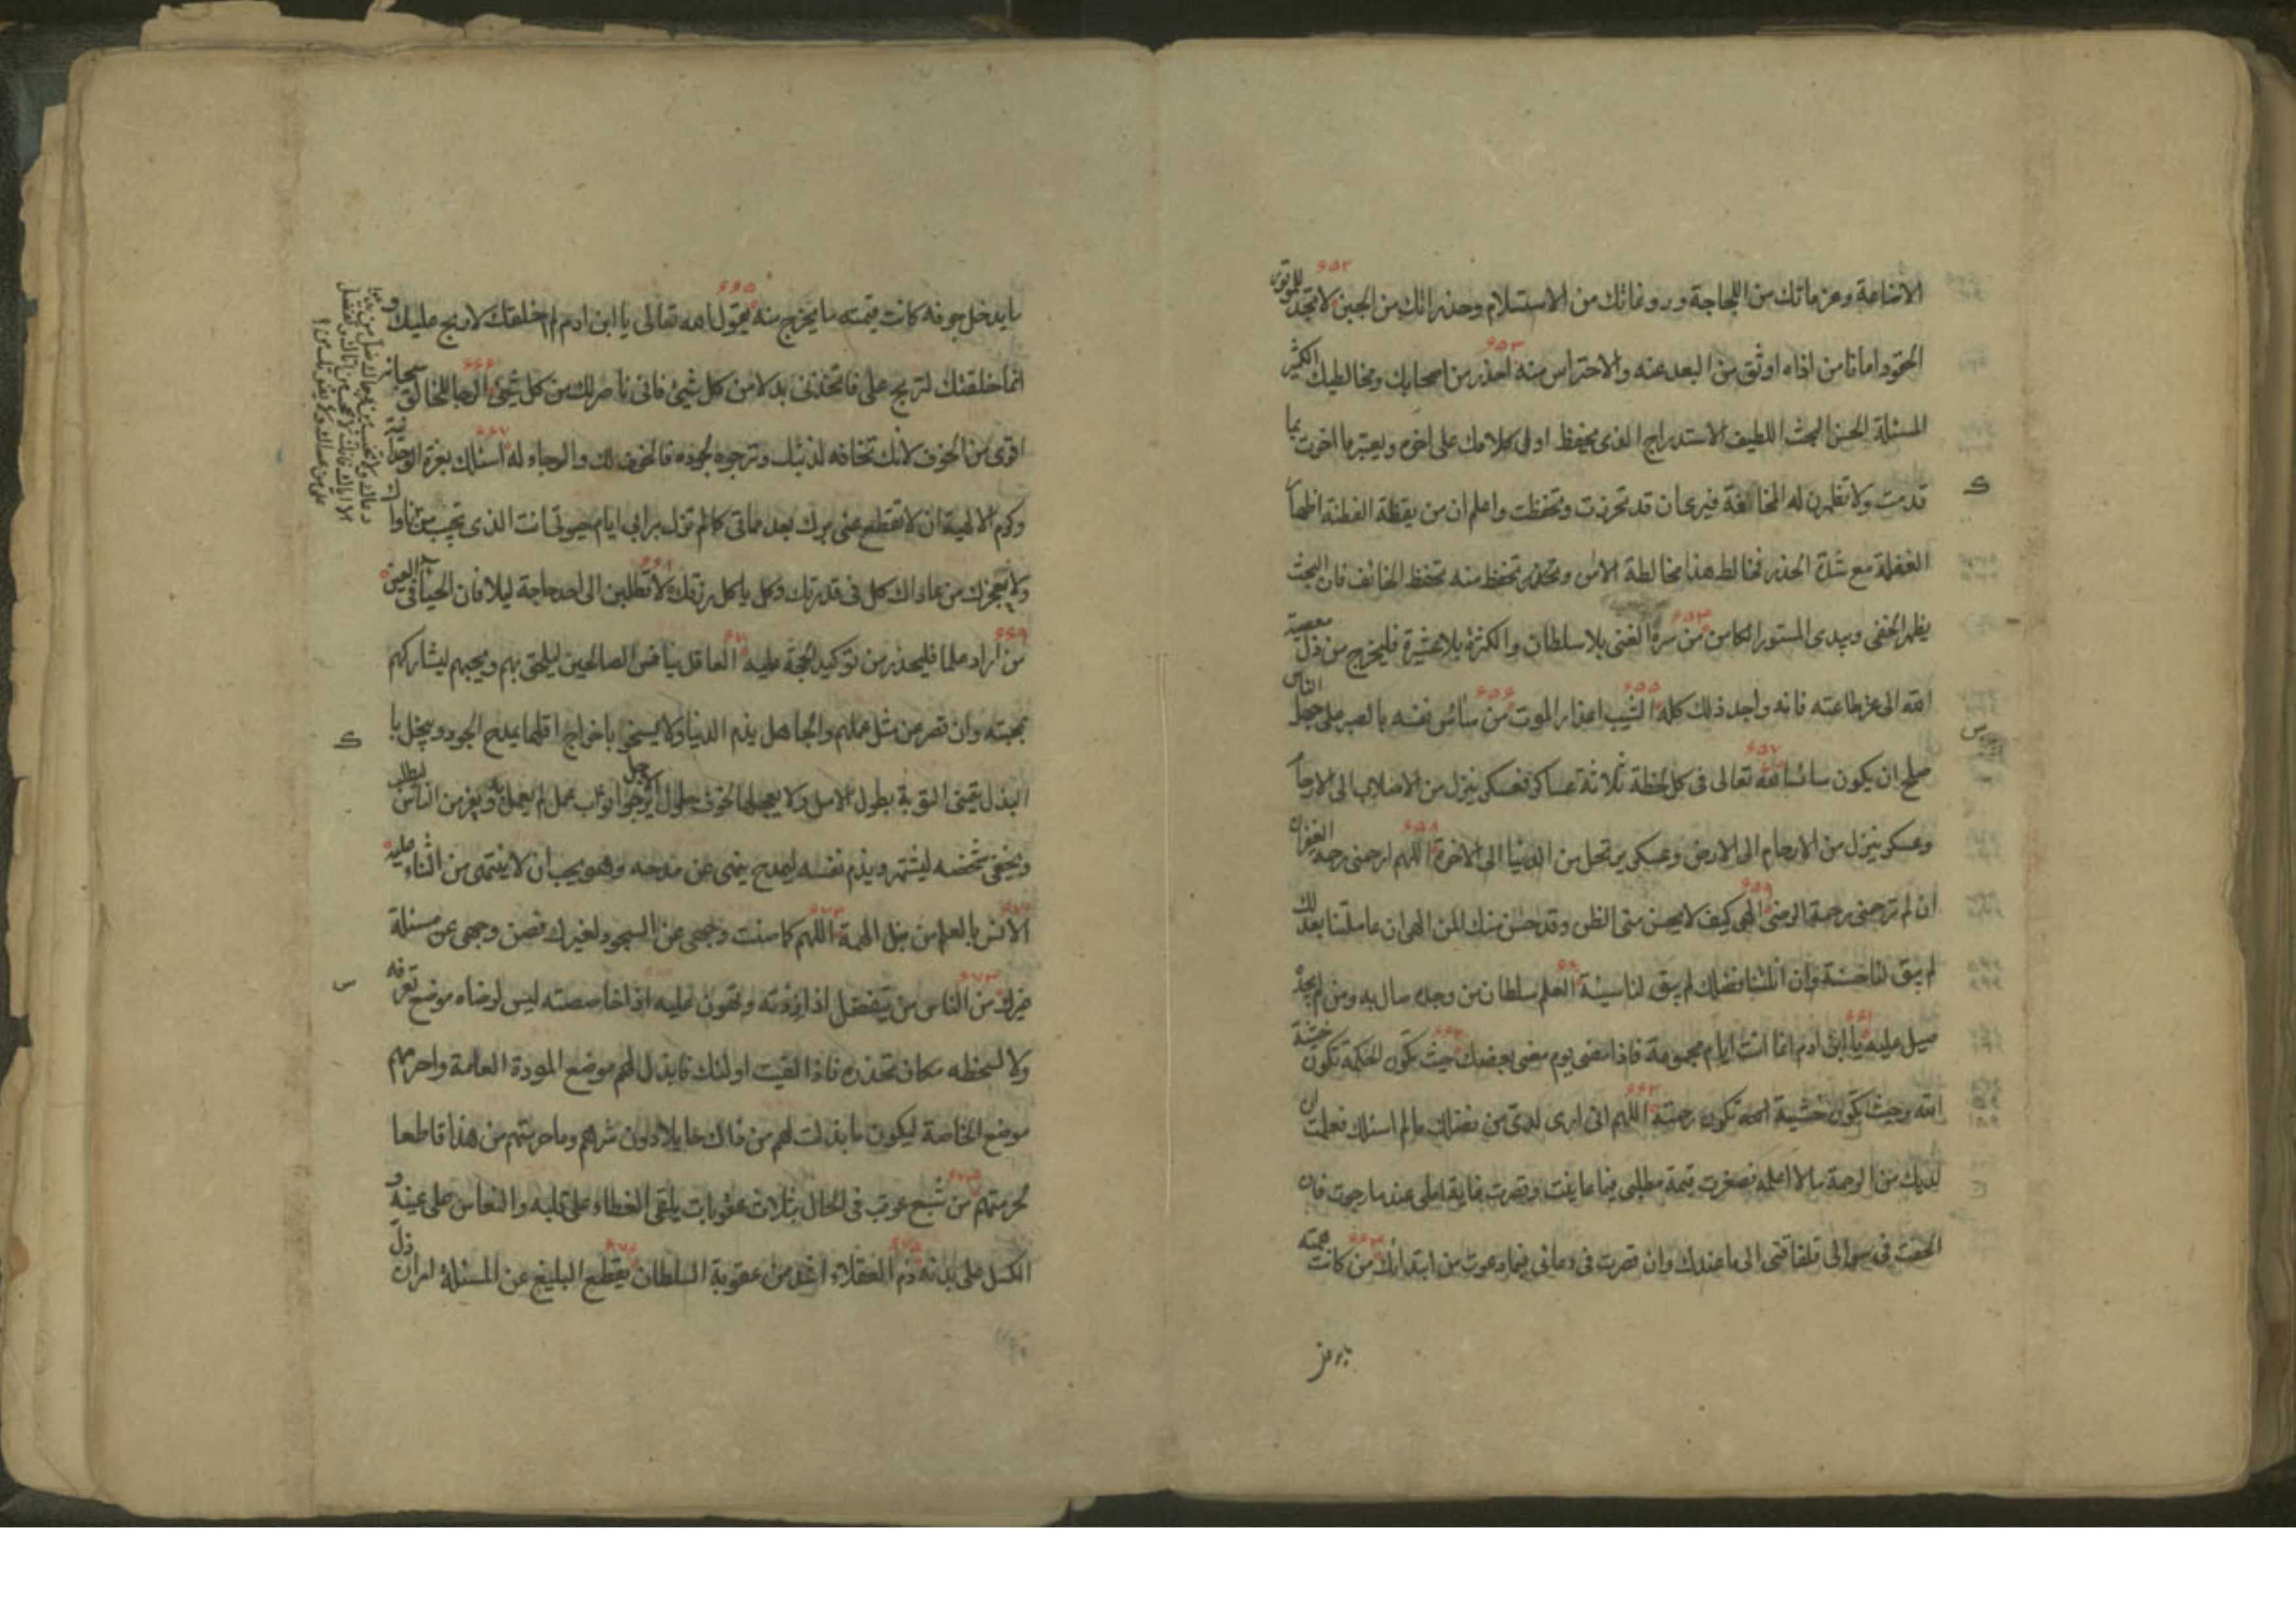 الاضاعة وعزماتك من اللجاجة وروغاتك من الاستسلام وحذراتك من الجبن لا تجد للموتور
الحقود امانا من اذاه اوثق من البعد عنه والاحتراس منه احذر من اصحابك ومخالطيك الكثير
المسئلة الحسن البحث اللطيف الاستدراج الذى يحفظ اول كلامك على اخره ويعتبر ما اخرت بما
قدمت ولا تظهرن له المخافة فيرى ان قد تحرزت وتحفظت واعلم ان من يقظة الفطنة اظهار
الغفلة مع شدة الحذر فخالط هذا مخالطة الامن وتحفظ منه تحفظ الخائف فان البحث
يظهر الخفى ويبدى المستور الكامن من سره الغنى بلا سلطان والكثرة بلا عشيرة فليخرج من ذل معصية
الله الى عز طاعته فانه واجد ذلك كله الشيب اعذار الموت من ساس نفسه بالصبر على جهل الناس
صلح ان يكون سائسا لله تعالى فى كل لحظة ثلاثة عساكر فعسكر ينزل من الاصلاب الى الارحام
وعسكر ينزل من الارحام الى الارض وعسكر يرتحل من الدنيا الى الاخرة اللهم ارحمنى رحمة الغفران
ان لم ترحمنى رحمة الرضى الهى كيف لا يحسن منى الظن وقد حسن منك المن الهى ان عاملتنا بعدلك
لم يبق لنا حسنة وان انلتنا فضلك لم يبق لنا سيئة العلم سلطان من وجده صال به ومن لم يجده
صيل عليه يا ابن ادم انما انت ايام مجموعة فاذا مضى يوم مضى بعضك حيث تكون الحكمة تكون خشية
الله وحيث تكون خشية الله تكون رحمته اللهم انى ارى لدى من فضلك ما لم اسئلك فعلمت ان
لديك من الرحمة ما لا اعلمه فصغرت قيمة مطلبى فيما عاينت وقصرت غاية املى عند ما رجوت فان
الحفت فى سؤالى فلفاقتى الى ما عندك وان قصرت فى دعائى فيما دعوت من ابتدائك من كانت همته
ما يدخل جوفه كانت قيمته ما يخرج منه يقول الله تعالى يا ابن ادم لم اخلقك لاربح عليك و
انما خلقتك لتربح على فاتخذنى بدلا من كل شيئ فانى ناصر لك من كل شيئ الرجا للخالق سبحانه
اقوى من الخوف لانك تخافه لذنبك وترجوه لجوده فالخوف لك والرجاء له اسئلك بعزة الوحدانية
وكرم الالهية ان لا تقطع عنى برك بعد مماتى كما لم تزل برابى ايام حيوتى انت الذى تجيب من
ولا يعجزك من عاداك كل فى قدرتك وكل ياكل رزقك لا تطلبن الى احد حاجة ليلا فان الحيا فى العين
من اراد علما فليحذر من توكيد الحجة عليه العاقل ينافس الصالحين ليلحق بهم ويحبهم ليشاركهم
بمحبته وان قصر عن مثل عملهم والجاهل يذم الدنيا ولا يسخو باخراج اقلها يمدح الجود ويبخل با
البذل يتمنى التوبة بطول الامل ولا يعجلها لخوف حلول الاجل يرجو ثواب عمل لم يعمل به ويفر من الناس ليطلب
ويخفى شخصه ليشتهر ويذم نفسه ليمدح ينهى عن مدحه وهو يحب ان لا ينتهى من الثناء عليه
الانس بالعلم من نبل الهمة اللهم كما صنت وجهى عن السجود لغيرك فصن وجهى عن مسئلة
غيرك من الناس من ينقصك اذا زدته وتهون عليه اذا خاصصته ليس لرضاه موضع تعرفه
ولا لسخطه مكان تحذره فاذا لقيت اولئك فابذل لهم موضع المودة العامة واحرمهم
موضع الخاصة ليكون ما بذلت لهم من ذلك حايلا دون شرهم وما حرمتهم من هذا قاطعا
لحرمتهم من شبع عوقب فى الحال بثلاث عقوبات يلقى الغطاء على قلبه والنعاس على عينه و
الكسل على بدنه ذم العقلاء اشد من عقوبة السلطان يقطع البليغ عن المسئلة امران ذل